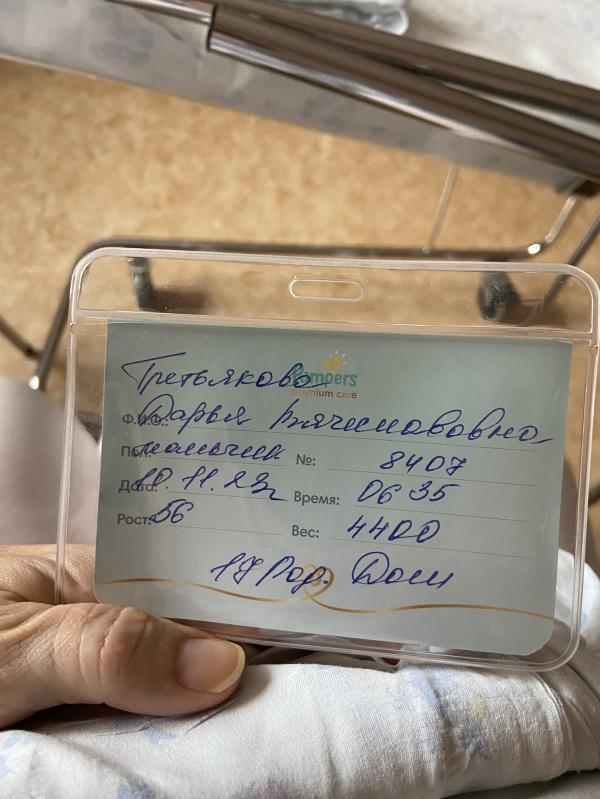 Третьякова
Pampers
premium care
Ф.И.О.: Дарья Вячеславовна
Пол: мальчик №: 8407
Дата: 10.11.22г Время: 06 35
Рост: 56 Вес: 4400
17 Род. Дом